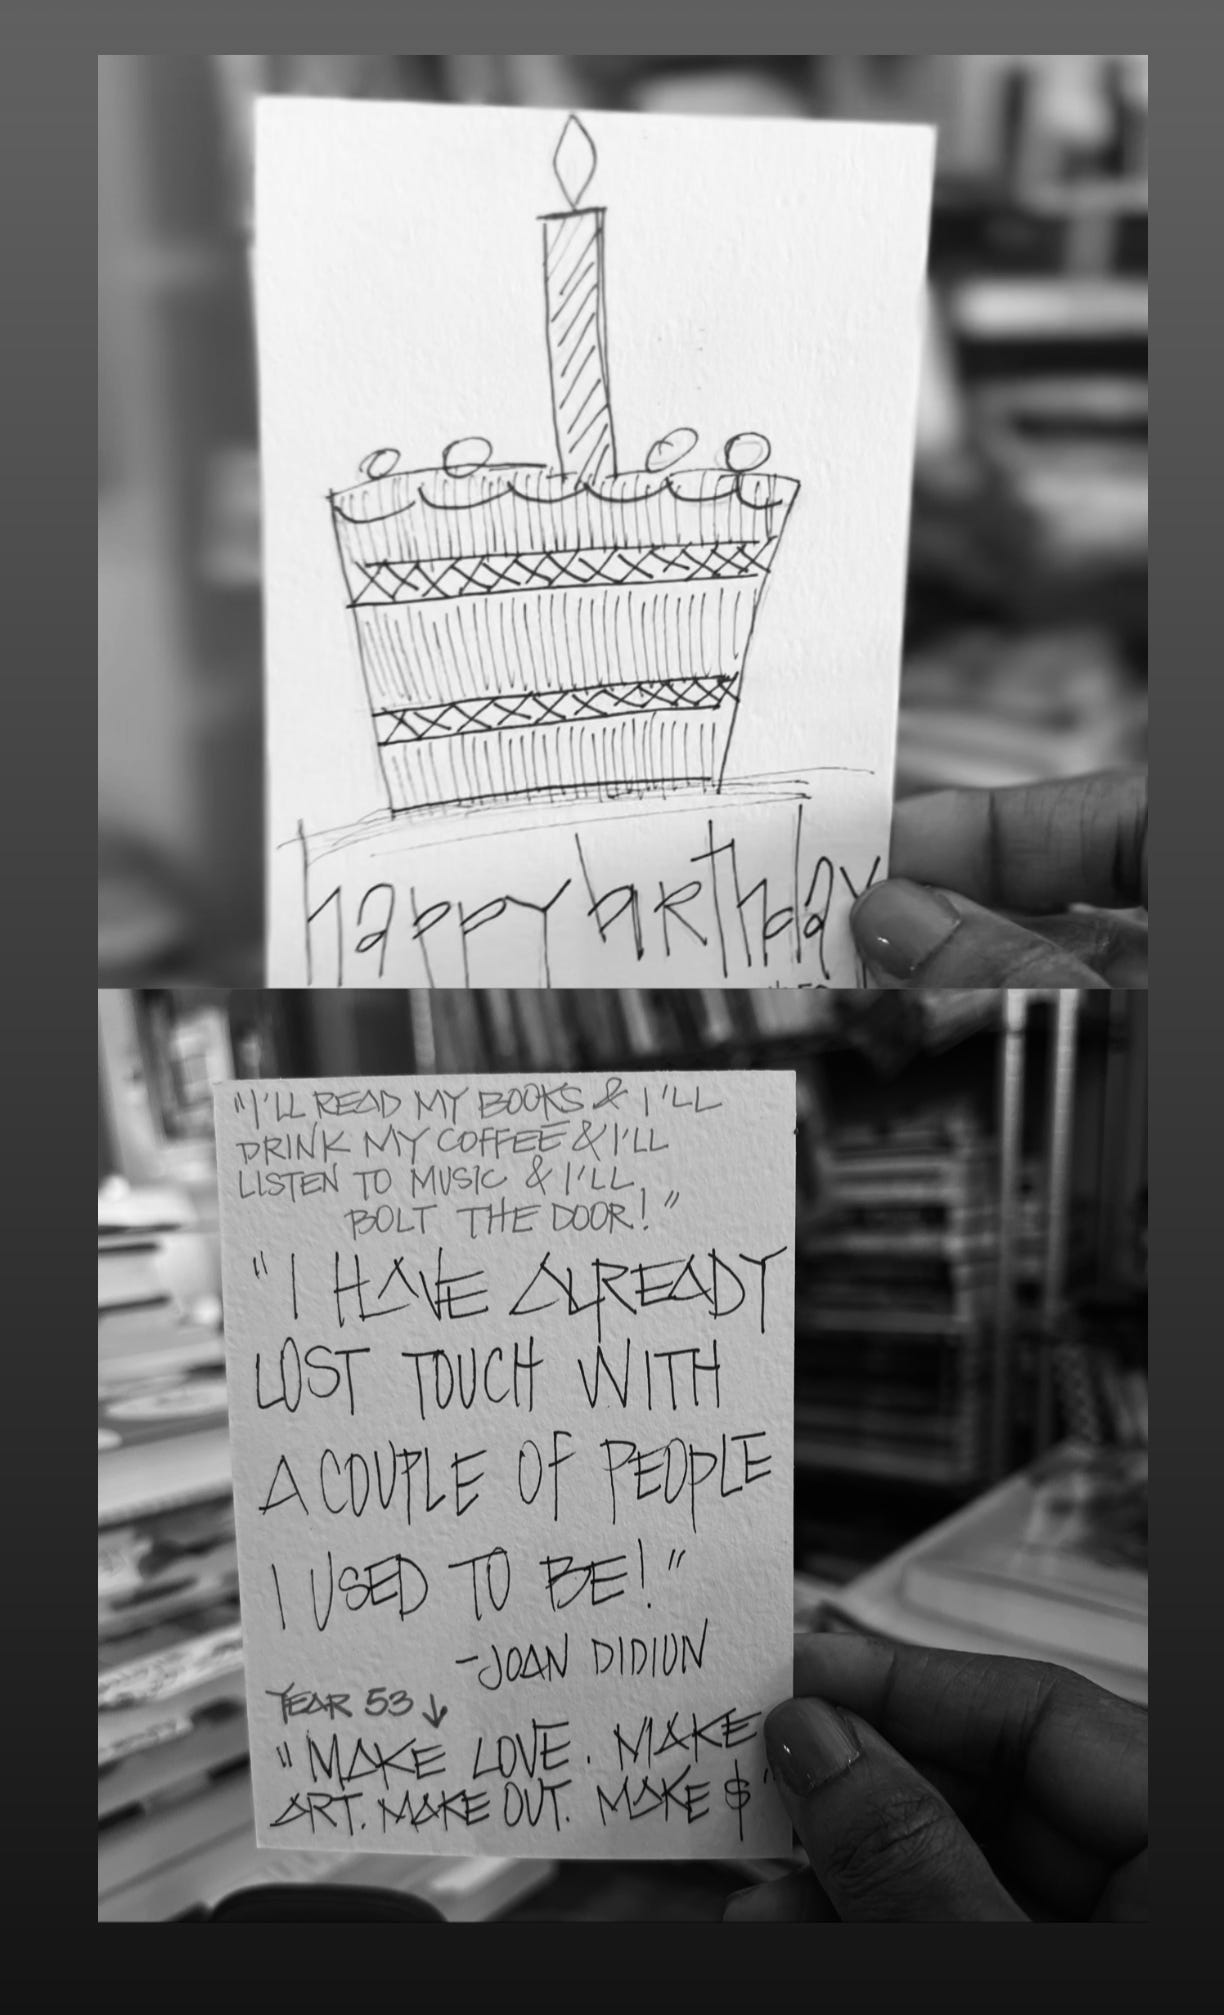 happy birthday
"I'LL READ MY BOOKS & I'LL
DRINK MY COFFEE & I'LL
LISTEN TO MUSIC & I'LL
BOLT THE DOOR!"
"I HAVE ALREADY
LOST TOUCH WITH
A COUPLE OF PEOPLE
I USED TO BE!"
-JOAN DIDIUN
YEAR 53 ↓
"MAKE LOVE. MAKE
ART. MAKE OUT. MAKE $"